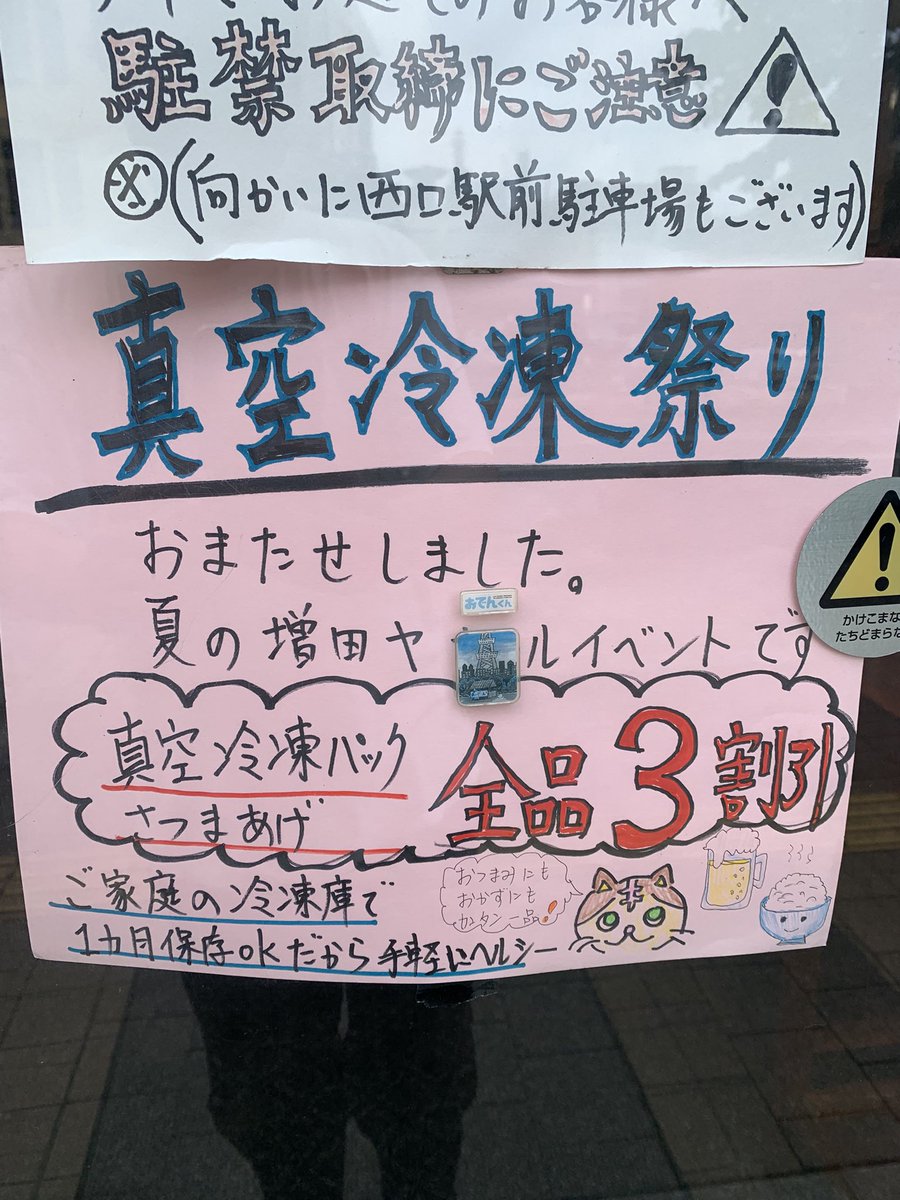 駐禁取締にご注意
※(向かいに西口駅前駐車場もございます)
真空冷凍祭り
おまたせしました。
おでんくん
夏の増田ヤ ルイベントです
かけこまな
たちどまらな
真空冷凍パック
さつまあげ
全品3割引
おつまみにも
おかずにも
カンタン一品!
ご家庭の冷凍庫で
1カ月保存OKだから手軽にヘルシー